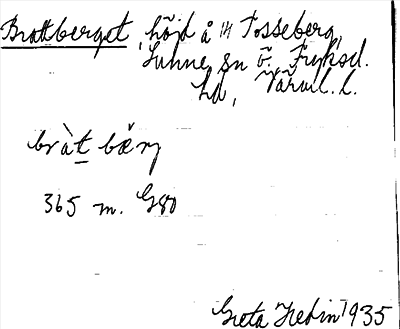 Brattberget, höjd å 1/4 Tosseberg,
Sunne sn Ö. Fryksd.
hd, Värml. l.
bràt bærj
365 m. G80
Greta Hedin 1935